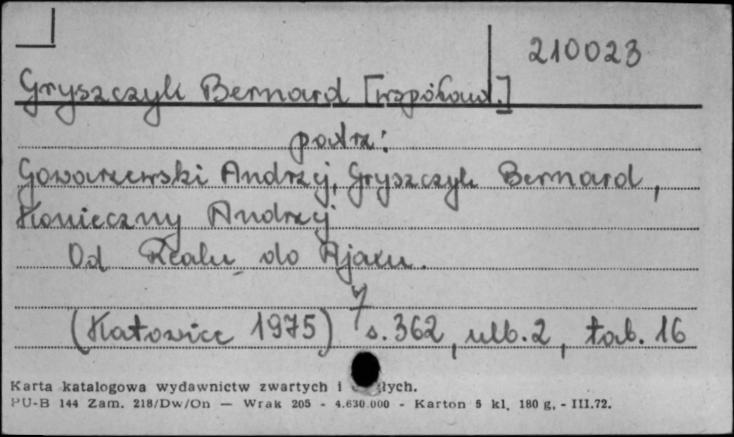 210023
Gryszczyk Bernard [współaut.]
patrz:
Gowarzewski Andrzej, Gryszczyk Bernard,
Konieczny Andrzej
Od Realu do Ajaxu.
(Katowice 1975) s. 362, nlb. 2, tab. 16
Karta katalogowa wydawnictw zwartych i
PU-B 144 Zam. 218/Dw/On — Wrak 205 - 4.630.000 - Karton 5 kl. 180 g. - III.72.